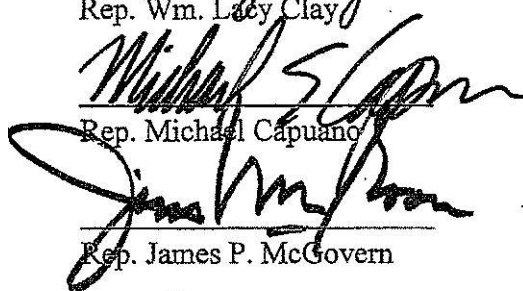 Rep. Wm. Lacy Clay
Michael E Capuano
Rep. Michael Capuano
Jim McGovern
Rep. James P. McGovern